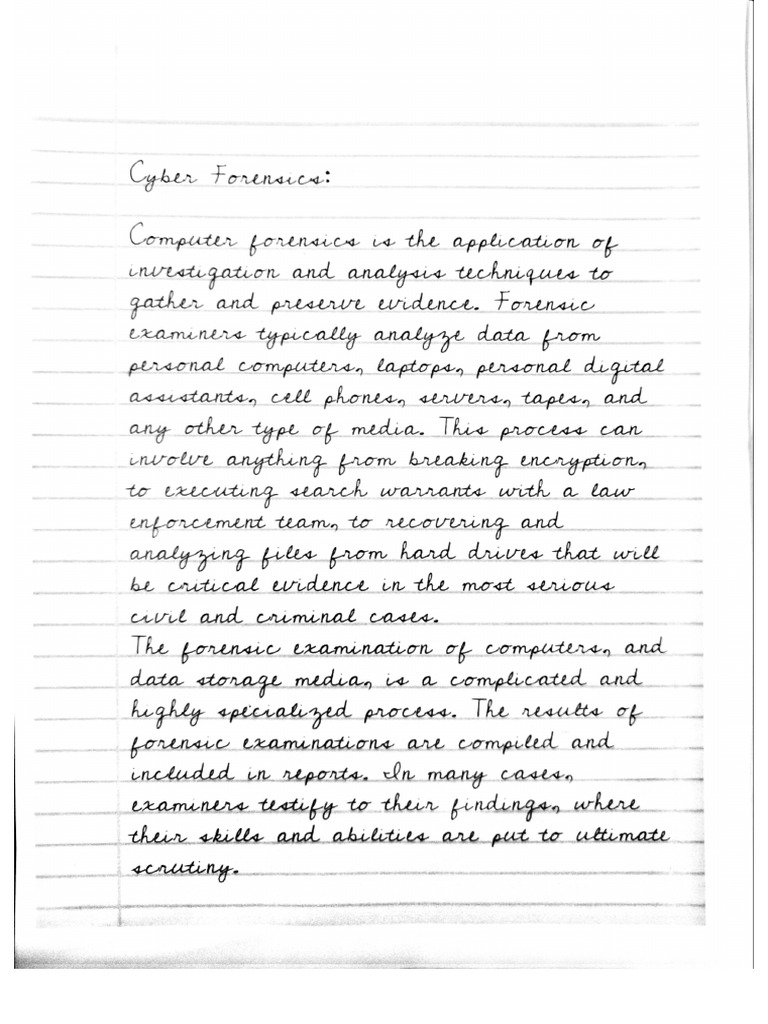 Cyber Forensics:
Computer forensics is the application of
investigation and analysis techniques to
gather and preserve evidence. Forensic
examiners typically analyze data from
personal computers, laptops, personal digital
assistants, cell phones, servers, tapes, and
any other type of media. This process can
involve anything from breaking encryption,
to executing search warrants with a law
enforcement team, to recovering and
analyzing files from hard drives that will
be critical evidence in the most serious
civil and criminal cases.
The forensic examination of computers, and
data storage media, is a complicated and
highly specialized process. The results of
forensic examinations are compiled and
included in reports. In many cases,
examiners testify to their findings, where
their skills and abilities are put to ultimate
scrutiny.